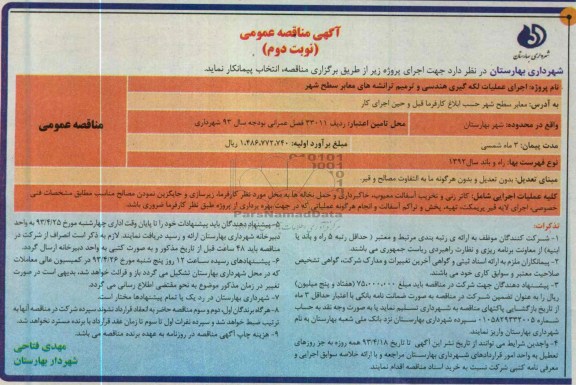 آگهی مناقصه عمومی
(نوبت دوم)
شهرداری بهارستان
شهرداری بهارستان در نظر دارد جهت اجرای پروژه زیر از طریق برگزاری مناقصه، انتخاب پیمانکار نماید.
مناقصه عمومی
نام پروژه: اجرای عملیات لکه گیری هندسی و ترمیم ترانشه های معابر سطح شهر
به آدرس: معابر سطح شهر حسب ابلاغ کارفرما قبل و حین اجرای کار
واقع در محدوده: شهر بهارستان
محل تامین اعتبار: ردیف ۳۳۰۱۱ فصل عمرانی بودجه سال ۹۳ شهرداری
مدت پیمان: ۳ ماه شمسی
مبلغ برآورد اولیه: ۱،۴۸۶،۷۷۲،۷۴۰ ریال
نوع فهرست بها: راه و باند سال ۱۳۹۲
مبنای تعدیل: بدون تعدیل و بدون هرگونه ما به التفاوت مصالح و قیر.
کلیه عملیات اجرایی شامل: کاتر زنی و تخریب آسفالت معیوب، خاکبرداری و حمل نخاله ها به محل مورد نظر کارفرما، زیرسازی و جایگزین نمودن مصالح مناسب مطابق مشخصات فنی
خصوصی، اجرای لایه قیر پریمکت، تهیه، پخش و تراکم آسفالت و انجام هرگونه عملیاتی که در جهت بهره برداری از پروژه طبق نظر کارفرما ضروری باشد.
تذکرات:
۱- شرکت کنندگان موظف به ارائه ی رتبه بندی مرتبط و معتبر ( حداقل رتبه ۵ راه و باند یا
ابنیه) از معاونت برنامه ریزی و نظارت راهبردی ریاست جمهوری می باشند.
۲- پیمانکاران ملزم به ارائه اسناد ثبتی و گواهی آخرین تغییرات و مدارک شرکت، گواهی تشخیص
صلاحیت معتبر و سوابق کاری خود می باشند.
۳- پیشنهاد دهندگان جهت شرکت در مناقصه باید مبلغ ۷۵،۰۰۰،۰۰۰ (هفتاد و پنج میلیون)
ریال را به عنوان تضمین شرکت در مناقصه به صورت ضمانت نامه بانکی با اعتبار حداقل ۳ ماه
از تاریخ بازگشایی پاکتهای مناقصه به شهرداری تسلیم نماید یا به صورت وجه نقد به حساب
شماره ۰۱۰۵۸۲۹۳۳۲۰۰۵ سپرده شهرداری بهارستان نزد بانک ملی شعبه بهارستان به نام
شهرداری بهارستان واریز نمایند.
۴- واجدین شرایط می توانند از تاریخ نشر این آگهی تا تاریخ ۹۳/۴/۱۸ همه روزه به جز روزهای
تعطیل به واحد امور قراردادهای شهرداری بهارستان مراجعه و با ارائه خلاصه سوابق اجرایی و
معرفی نامه کتبی شرکت نسبت به خرید اسناد مناقصه اقدام نمایند.
۵- پیشنهاد دهندگان باید پیشنهادات خود را تا پایان وقت اداری چهارشنبه مورخ ۹۳/۴/۲۵ به واحد
دبیرخانه شهرداری بهارستان ارائه و رسید دریافت نمایند. لازم به ذکر است انصراف از شرکت در
مناقصه باید ۴۸ ساعت قبل از تاریخ مذکور و به صورت کتبی به واحد دبیرخانه ارسال گردد.
۶- پیشنهادهای رسیده ساعت ۱۲ روز پنج شنبه مورخ ۹۳/۴/۲۶ در کمیسیون عالی معاملات
که در محل شهرداری بهارستان تشکیل می گردد باز و قرائت خواهد شد، بدیهی است در صورت
تغییر در زمان مذکور موضوع به نحو مقتضی اطلاع رسانی می گردد.
۷- شهرداری بهارستان در رد یک یا تمام پیشنهادها مختار است.
۸- هرگاه برندگان اول، دوم و سوم مناقصه حاضر به انعقاد قرارداد نشوند سپرده شرکت در مناقصه آنها به
ترتیب ضبط خواهد شد و سپرده نفرات اول تا سوم تا زمان عقد قرارداد با برنده مسترد نخواهد شد.
۹- هزینه چاپ آگهی مناقصه در روزنامه به عهده برنده مناقصه می باشد.
مهدی فتاحی
شهردار بهارستان
ParsNamadData